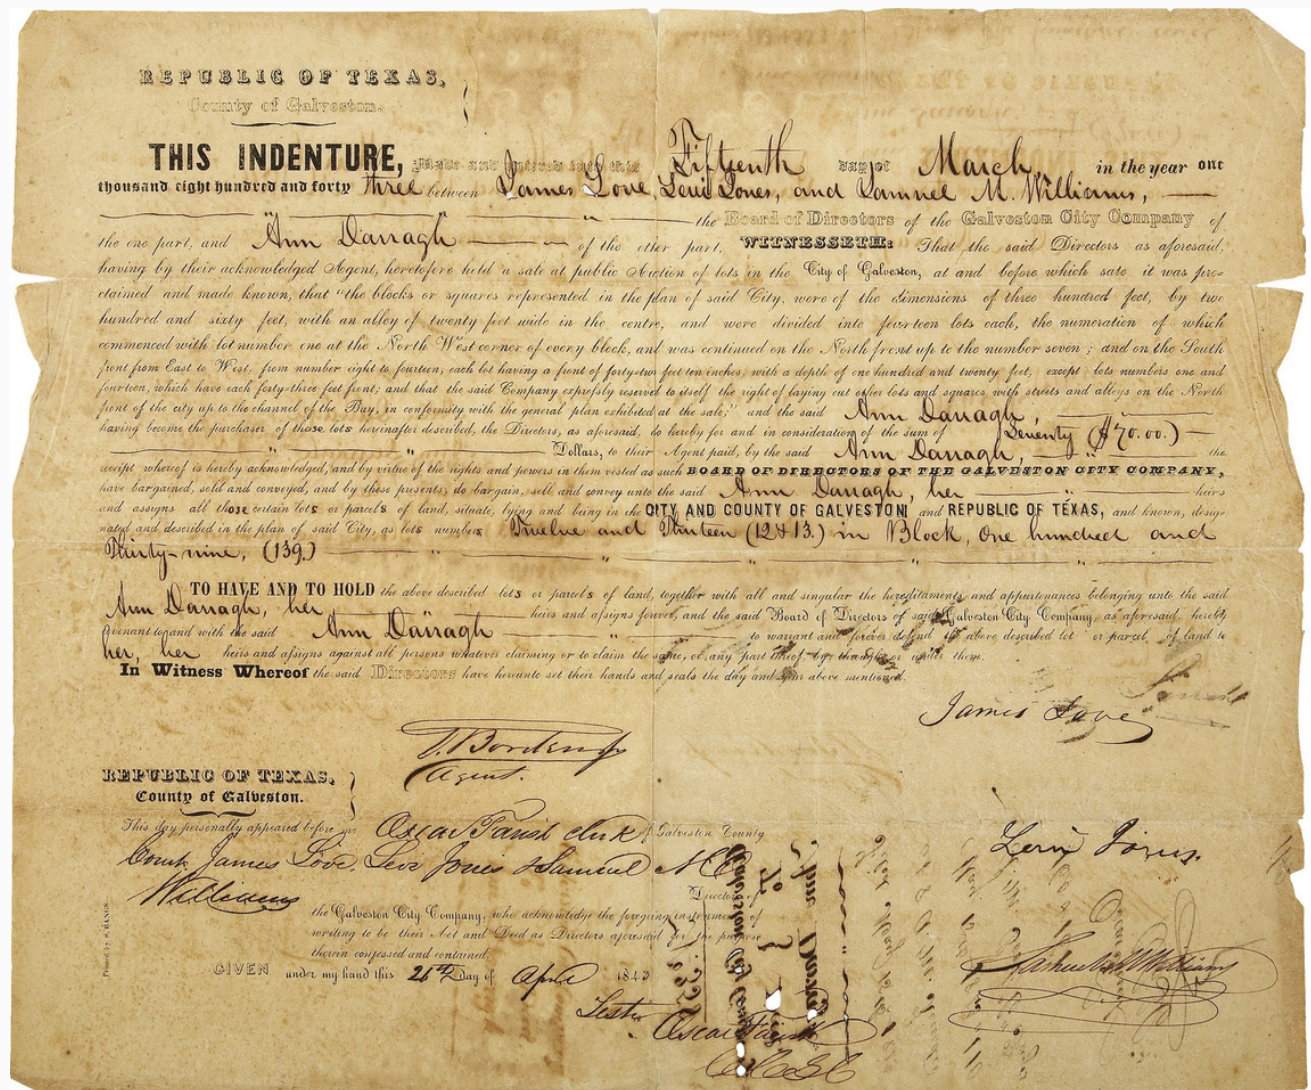 REPUBLIC OF TEXAS,
County of Galveston.
THIS INDENTURE, Made and entered into this Fifteenth day of March, in the year one
thousand eight hundred and forty three between James Love, Levi Jones, and Samuel M. Williams,
the Board of Directors of the Galveston City Company of
the one part, and Ann Darragh of the other part. WITNESSETH: That the said Directors as aforesaid,
having by their acknowledged Agent, heretofore held a sale at public Auction of lots in the City of Galveston, at and before which sale it was pro-
claimed and made known, that "the blocks or squares represented in the plan of said City, were of the dimensions of three hundred feet, by two
hundred and sixty feet, with an alley of twenty feet wide in the centre, and were divided into fourteen lots each, the numeration of which
commenced with lot number one at the North West corner of every block, and was continued on the North front up to the number seven; and on the South
front from East to West, from number eight to fourteen, each lot having a front of forty-two feet ten inches, with a depth of one hundred and twenty feet, except lots numbers one and
fourteen, which have each forty-three feet front; and that the said Company expressly reserved to itself the right of laying out other lots and squares with streets and alleys on the North
front of the city up to the channel of the Bay, in conformity with the general plan exhibited at the sale;" and the said Ann Darragh,
having become the purchaser of those lots hereinafter described, the Directors, as aforesaid, do hereby for and in consideration of the sum of Seventy ($70.00.)
Dollars, to their Agent paid, by the said Ann Darragh, the
receipt whereof is hereby acknowledged, and by virtue of the rights and powers in them vested as such BOARD OF DIRECTORS OF THE GALVESTON CITY COMPANY,
have bargained, sold and conveyed, and by these presents, do bargain, sell and convey unto the said Ann Darragh, her heirs
and assigns all those certain lots or parcels of land, situate, lying and being in the CITY AND COUNTY OF GALVESTON and REPUBLIC OF TEXAS, and known, desig-
nated and described in the plan of said City, as lots numbers Twelve and Thirteen (12 & 13.) in Block, One hundred and
Thirty-nine, (139.)
TO HAVE AND TO HOLD the above described lots or parcels of land, together with all and singular the hereditaments and appurtenances belonging unto the said
Ann Darragh, her heirs and assigns forever, and the said Board of Directors of said Galveston City Company, as aforesaid, hereby
covenant to and with the said Ann Darragh to warrant and forever defend the above described lot or parcel of land to
her, her heirs and assigns against all persons whatever claiming or to claim the same, or any part thereof, by, through or under them.
In Witness Whereof the said Directors have hereunto set their hands and seals the day and year above mentioned.
James Love
Agent.
REPUBLIC OF TEXAS,
County of Galveston.
This day personally appeared before me Oscar Farish clerk of Galveston County
Court James Love, Levi Jones & Samuel M
Williams Directors of
the Galveston City Company, who acknowledge the foregoing instrument of
writing to be their Act and Deed as Directors aforesaid for the purpose
therein confessed and contained.
GIVEN under my hand this 26th day of April 1843
Levi Jones.
Samuel M Williams
Teste
Oscar Farish
Printed by S. BANGS.